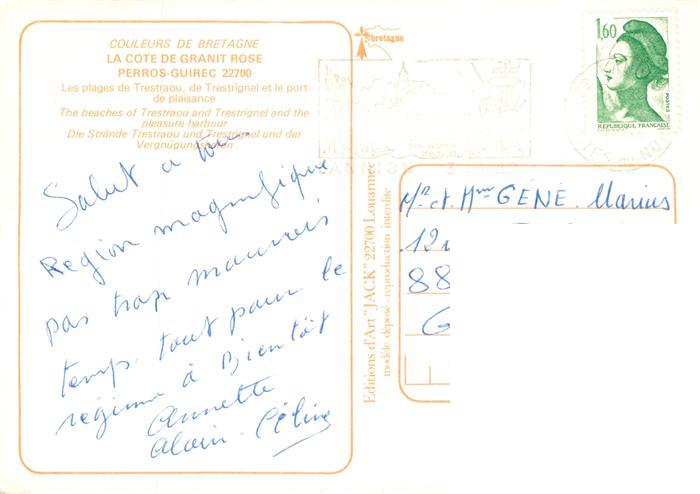 COULEURS DE BRETAGNE
LA COTE DE GRANIT ROSE
PERROS-GUIREC 22700
Les plages de Trestraou, de Trestrignel et le port
de plaisance
The beaches of Trestraou and Trestrignel and the
pleasure harbour
Die Strände Trestraou und Trestrignel und der
Vergnügungshafen
Salut a tous
Région magnifique
pas trop mauvais
temps. tout pour le
régime à Bientôt
Annette
Alain. Céline
bretagne
LANNION
1,60
POSTES
REPUBLIQUE FRANÇAISE
Editions d'Art "JACK" 22700 Louannec
modèle déposé - reproduction interdite
Mr. et. Mme GÉNÉ. Marius
12
88
G